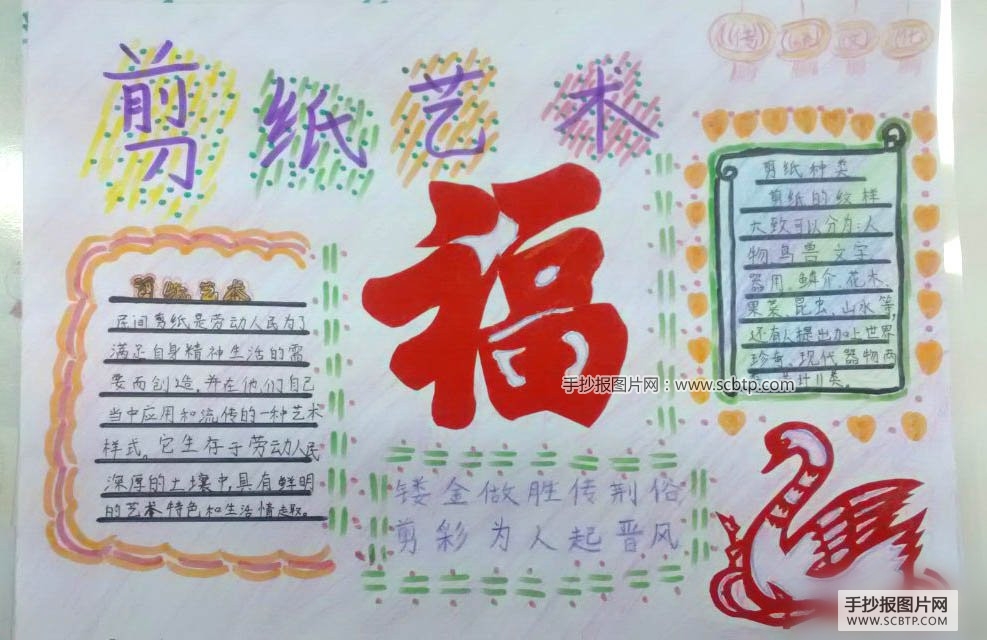 剪纸艺术
传统文化
剪纸艺术
民间剪纸是劳动人民为了
满足自身精神生活的需
要而创造,并在他们自己
当中应用和流传的一种艺术
样式。它生存于劳动人民
深厚的土壤中,具有鲜明
的艺术特色和生活情趣。
福
手抄报图片网:www.scbtp.com
镂金做胜传荆俗
剪彩为人起晋风
剪纸种类
剪纸的纹样
大致可以分为:人
物鸟兽文字
器用、鳞介、花木、
果菜、昆虫、山水等,
还有人提出加上世界
珍奇、现代器物两
共计11类。
手抄报图片网
WWW.SCBTP.COM